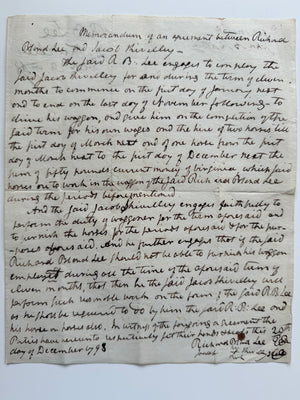 Memorandum of an agreement between Richard
Bland Lee and Jacob Shiveley —
The said R. B. Lee engages to employ the
said Jacob Shiveley for and during the term of eleven
months to commence on the first day of January next
and to end on the last day of November following — to
drive his waggon, and give him on the completion of the
said term for his own wages and the hire of two horses till
the first day of March next and of one horse from the first
day of March next to the first day of December next the
sum of fifty pounds current money of Virginia which said
horses are to work in the waggon of the said Richard Bland Lee
during the periods beforementioned
And the said Jacob Shiveley engages faithfully to
perform the duty of waggoner for the term aforesaid and
to work the horses for the periods aforesaid & for the pur-
poses aforesaid. And he further engages that if the said
Richard Bland Lee should not be able to furnish his waggon
employment during all the time of the aforesaid term of
eleven months, that then he the said Jacob Shiveley will
perform such reasonable work on the farm of the said R. B. Lee
as he shall be required to do by him the said R. B. Lee and
his horse or horses also. In witness of the foregoing agreement the
Parties have hereunto respectively put their hands & seals this 20th
day of December 1798
Richard Bland Lee